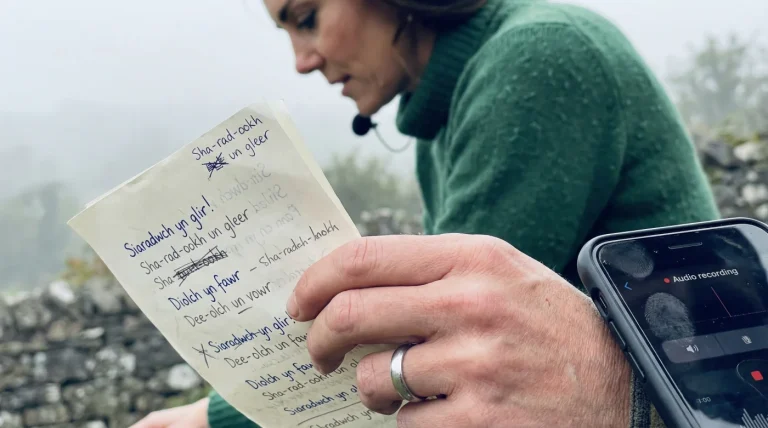 Sha-rad-ookh
un gleer
Siaradwch yn glir!
Sha-rad-ookh un gleer
Sha-
Diolch yn fawr – Sha-radah-hookh
Dee-olch un vowr
X Siaradwch yn glir!
Dee-olch un faw
Diolch yn faw
Sha-rad-ookh
Siaradwch yn
Audio recording